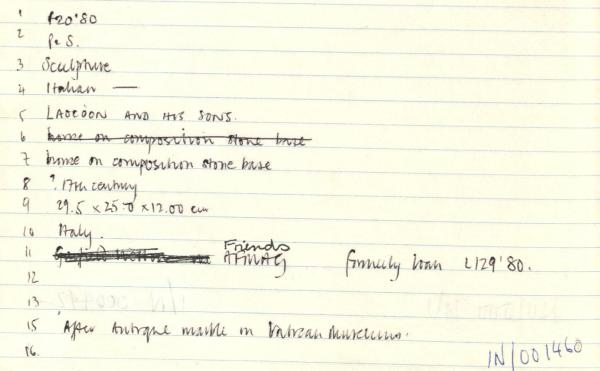 1 P20'80
2 P&S.
3 Sculpture
4 Italian —
5 LAOCOON AND HIS SONS.
6 bronze on composition stone base
7 bronze on composition stone base
8 ? 17th century
9 29.5 x 25.0 x 12.00 cm
10 Italy.
11 Friends formerly loan L129'80.
12
13
15 After Antique marble in Vatican Museum.
16.
IN/001460